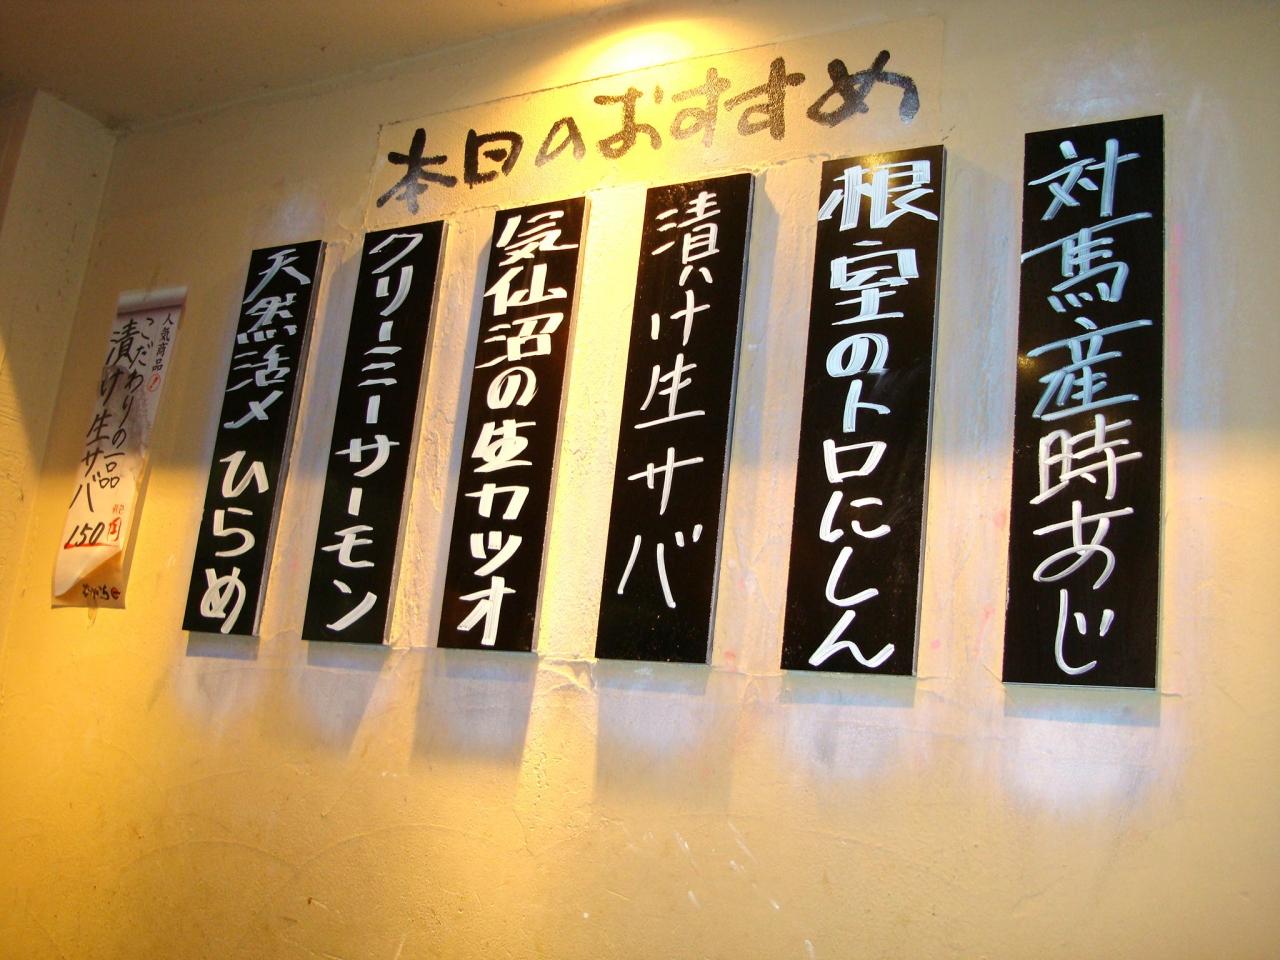 本日のおすすめ
対馬産時あじ
根室のトロにしん
漬け生サバ
気仙沼の生カツオ
クリーミーサーモン
天然活〆ひらめ
人気商品!
こだわりの一品
漬け生サバ
150円